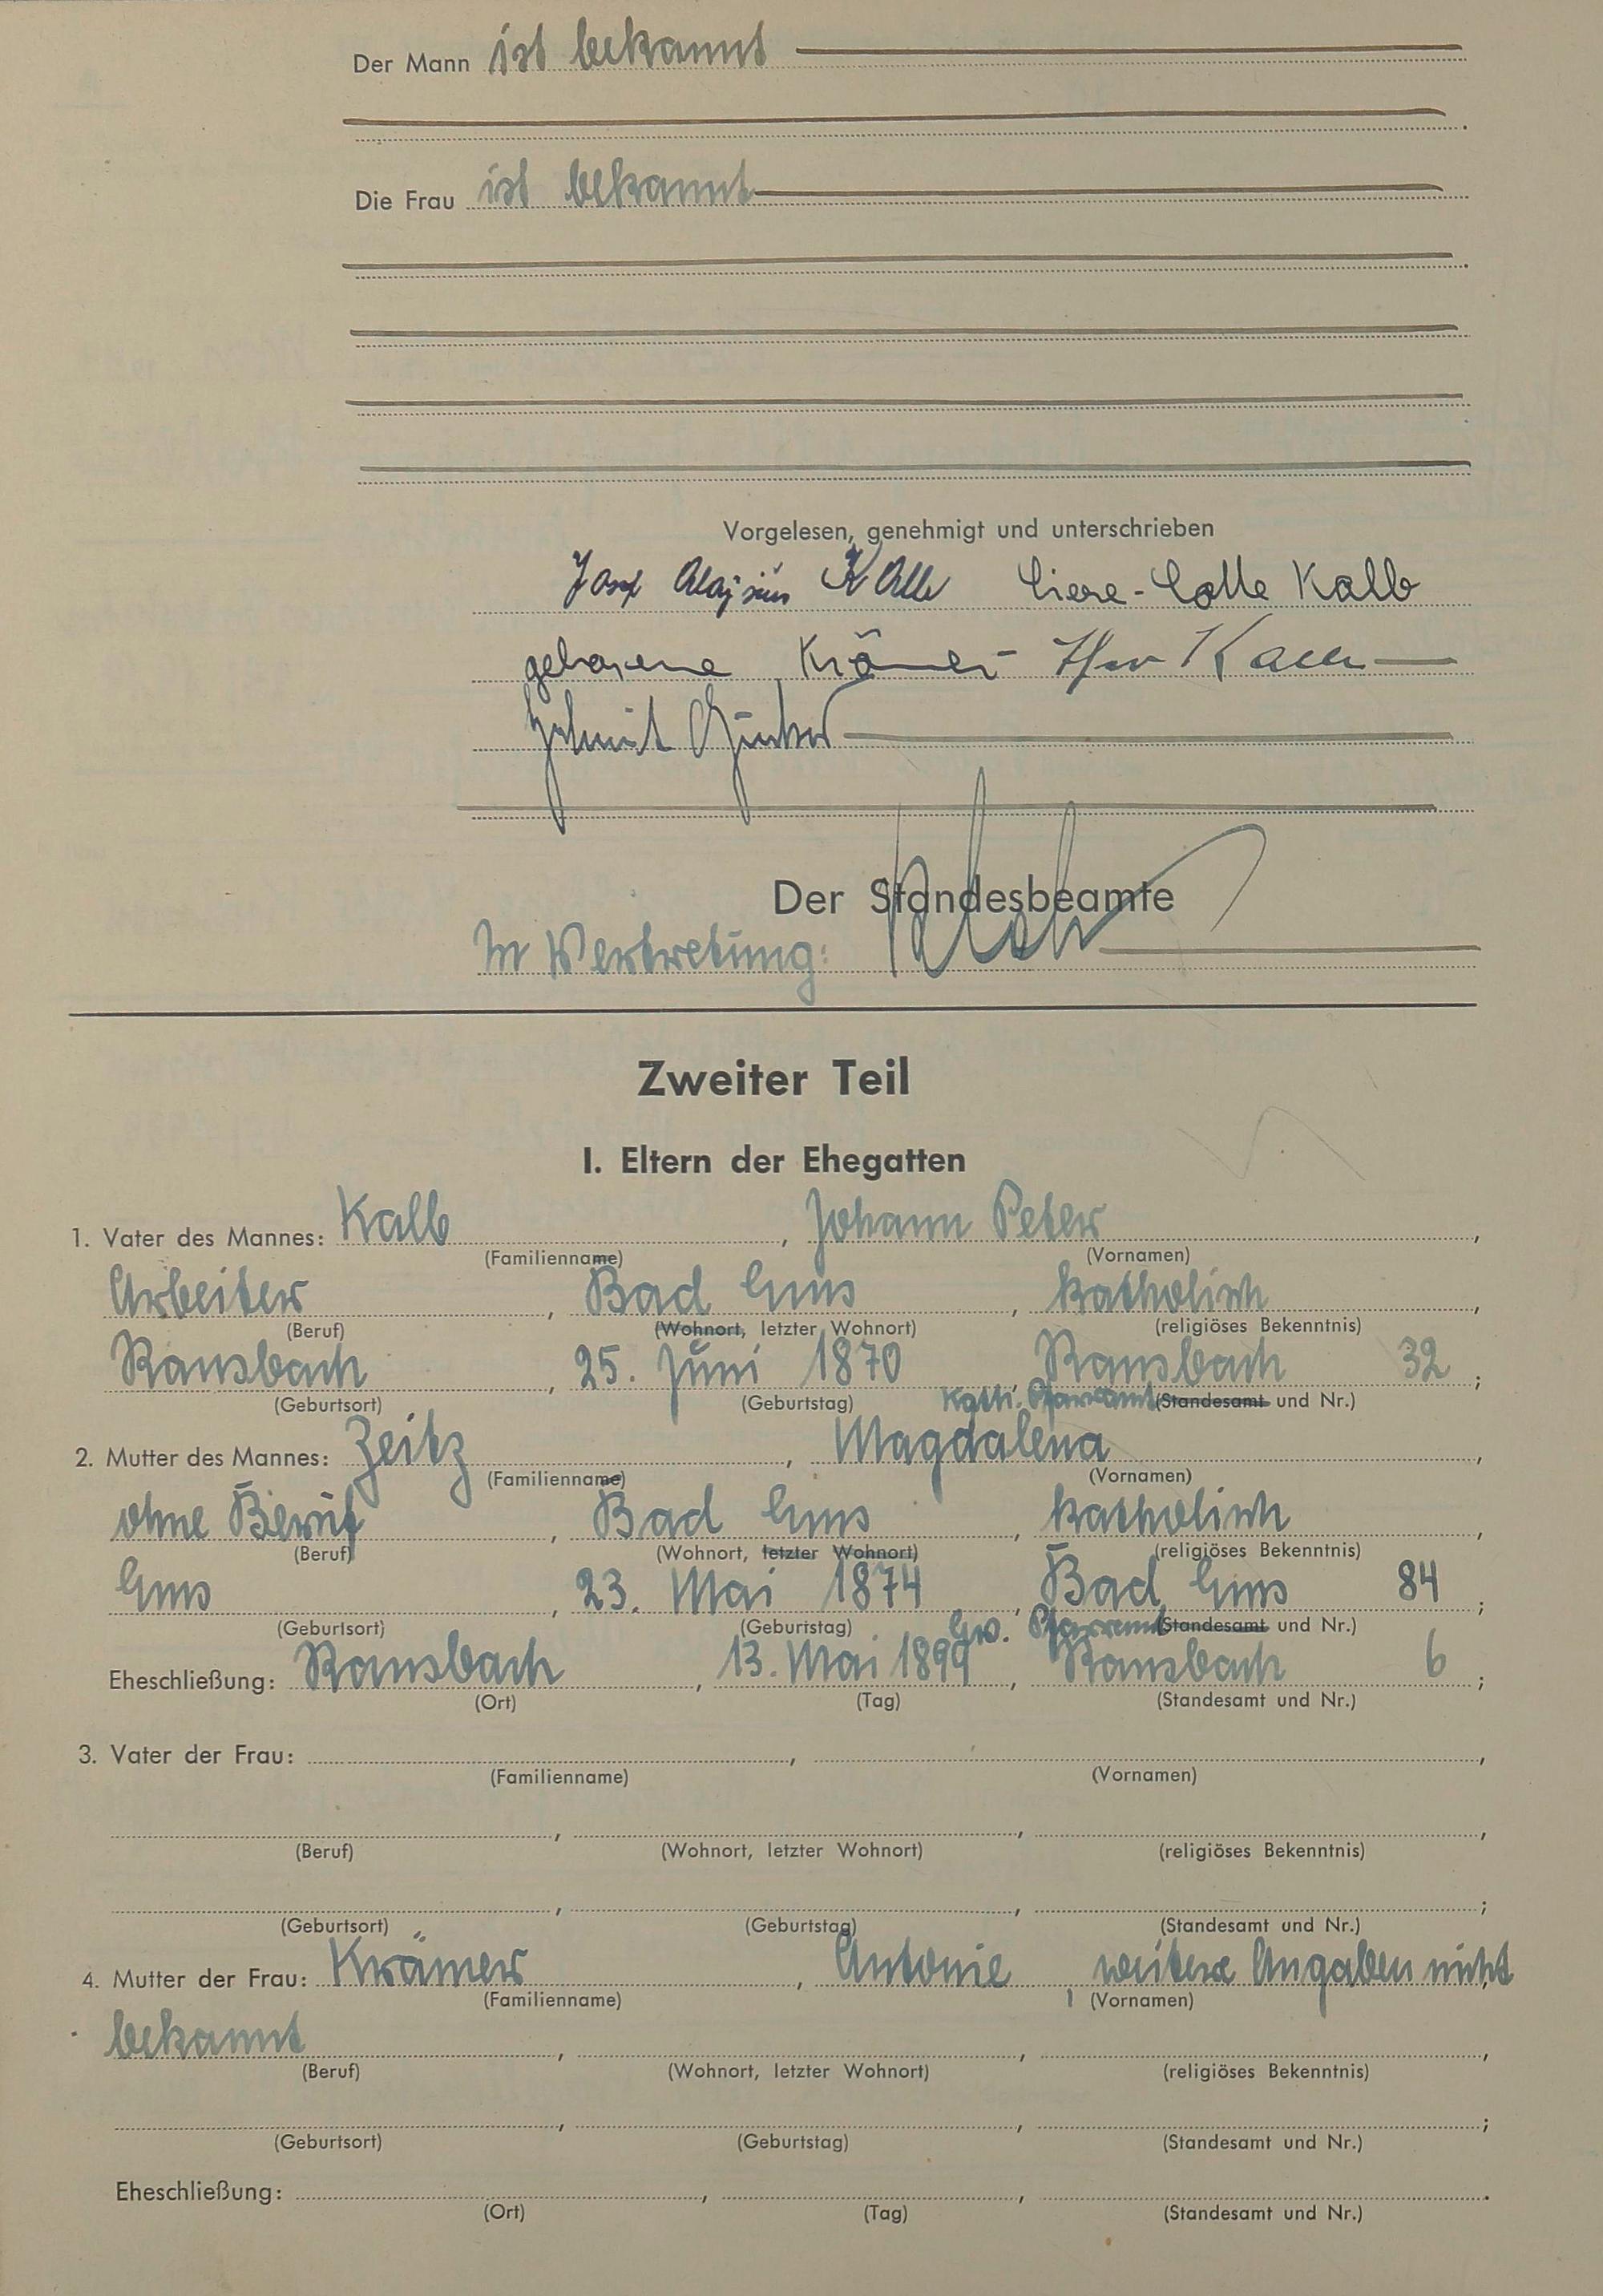 Der Mann ist bekannt
Die Frau ist bekannt
Vorgelesen, genehmigt und unterschrieben
Josef Alojsius Kalb Liese-Lotte Kalb
geborene Krämer
Helmut Günther
Der Standesbeamte
In Vertretung:
Zweiter Teil
I. Eltern der Ehegatten
1. Vater des Mannes: Kalb, Johann Peter,
(Familienname) (Vornamen)
Arbeiter, Bad Ems, katholisch,
(Beruf) (Wohnort, letzter Wohnort) (religiöses Bekenntnis)
Ransbach, 25. Juni 1870, Ransbach 32;
(Geburtsort) (Geburtstag) Kath. Pfarramt (Standesamt und Nr.)
2. Mutter des Mannes: Zeitz, Magdalena,
(Familienname) (Vornamen)
ohne Beruf, Bad Ems, katholisch,
(Beruf) (Wohnort, letzter Wohnort) (religiöses Bekenntnis)
Ems, 23. Mai 1874, Bad Ems 84;
(Geburtsort) (Geburtstag) Ev. Pfarramt (Standesamt und Nr.)
Eheschließung: Ransbach, 13. Mai 1899, Ransbach 6;
(Ort) (Tag) (Standesamt und Nr.)
3. Vater der Frau: , ,
(Familienname) (Vornamen)
, , ,
(Beruf) (Wohnort, letzter Wohnort) (religiöses Bekenntnis)
, , ;
(Geburtsort) (Geburtstag) (Standesamt und Nr.)
4. Mutter der Frau: Krämer, Antonie, weitere Angaben nicht
(Familienname) (Vornamen)
bekannt, , ,
(Beruf) (Wohnort, letzter Wohnort) (religiöses Bekenntnis)
, , ;
(Geburtsort) (Geburtstag) (Standesamt und Nr.)
Eheschließung: , , .
(Ort) (Tag) (Standesamt und Nr.)